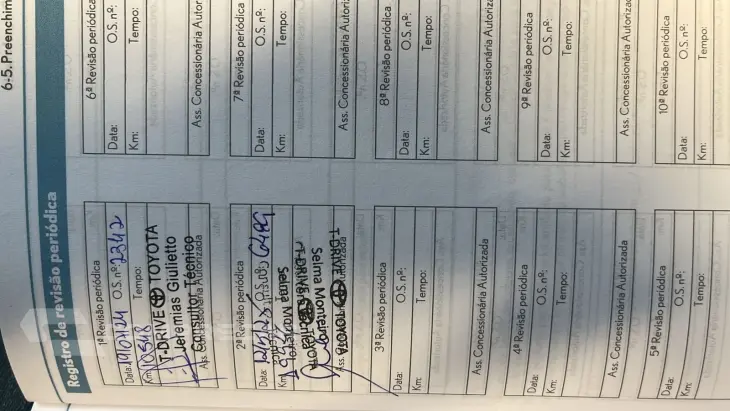 6-5. Preenchim
Registro de revisão periódica
1ª Revisão periódica
Data: O.S. nº: 2342
Km: Tempo:
T-DRIVE TOYOTA
Jeremias Giulietto
Consultor Técnico
Ass. Concessionária Autorizada
2ª Revisão periódica
Data: O.S. nº:
Km:
Selma
T-DRIVE TOYOTA
Selma
T-DRIVE TOYOTA
3ª Revisão periódica
Data: O.S. nº:
Km: Tempo:
Ass. Concessionária Autorizada
4ª Revisão periódica
Data: O.S. nº:
Km: Tempo:
Ass. Concessionária Autorizada
5ª Revisão periódica
Data: O.S. nº:
Km: Tempo:
6ª Revisão periódica
Data: O.S. nº:
Km: Tempo:
Ass. Concessionária Autor
7ª Revisão periódica
Data: O.S. nº:
Km: Tempo:
Ass. Concessionária Autori
8ª Revisão periódica
Data: O.S. nº:
Km: Tempo:
Ass. Concessionária Autoriz
9ª Revisão periódica
Data: O.S. nº:
Km: Tempo:
Ass. Concessionária Autoriza
10ª Revisão periódica
Data: O.S. nº:
Km: Tempo: